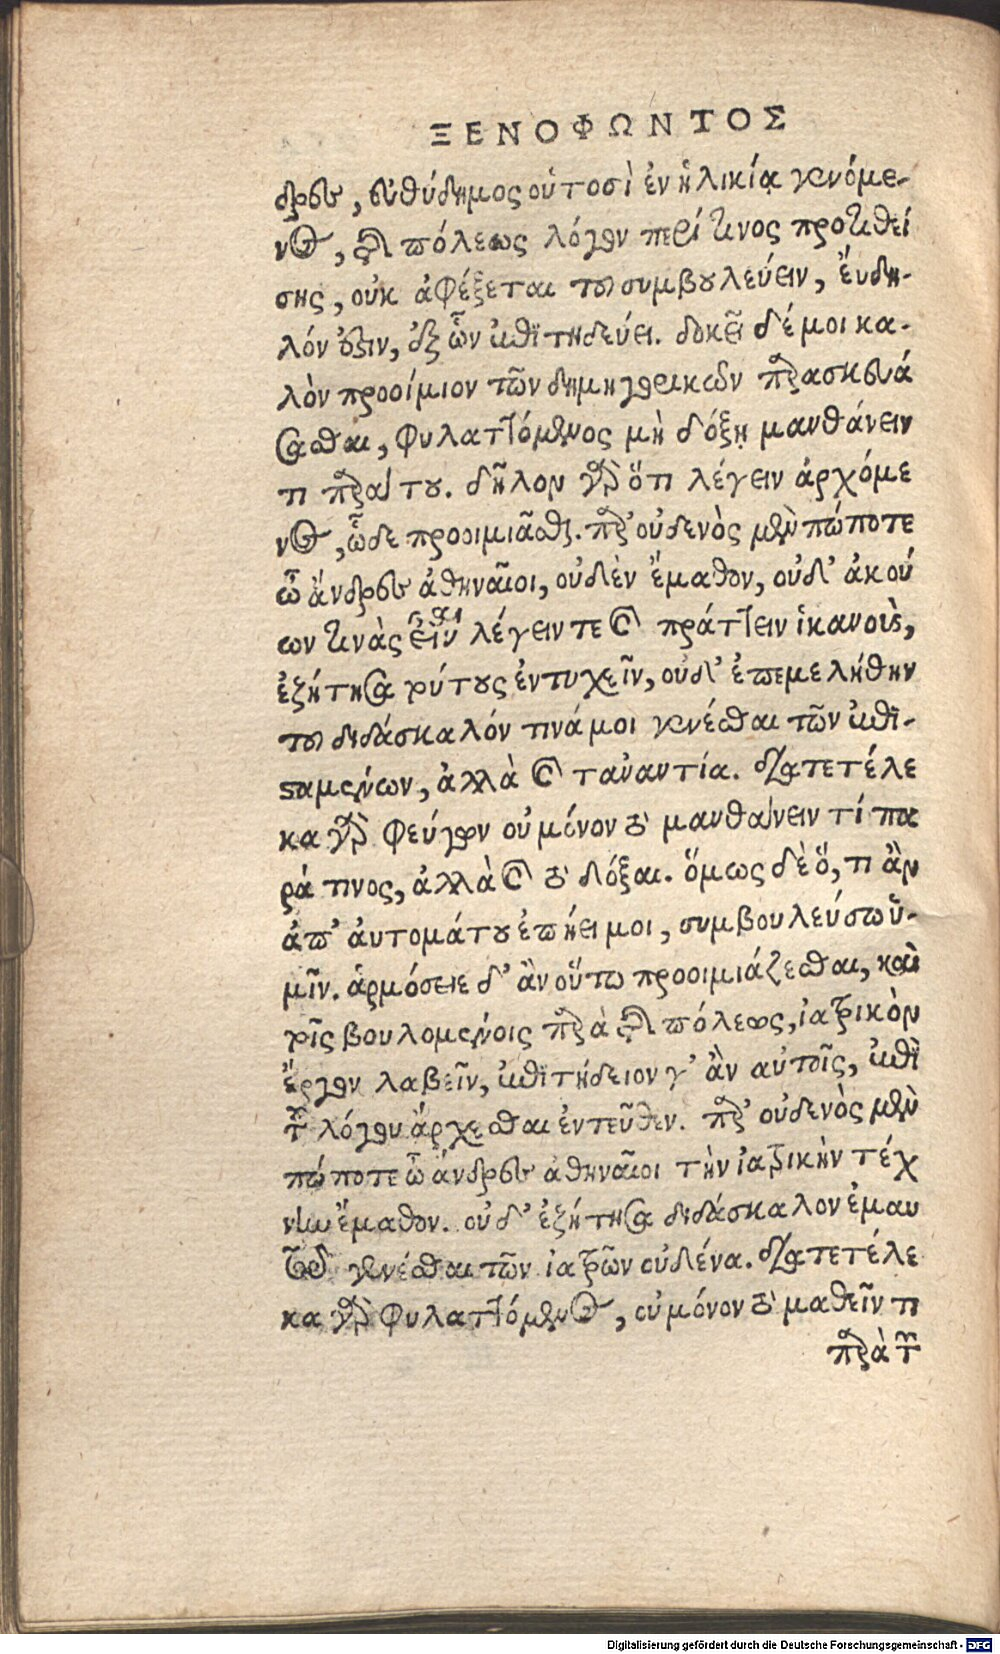 ΞΕΝΟΦΩΝΤΟΣ
δρες, εὐθύδημος οὑτοσὶ ἐν ἡλικίᾳ γενόμε-
νος, τῆς πόλεως λόγον περί τινος προτιθεί
σης, οὐκ ἀφέξεται τοῦ συμβουλεύειν, ἔυδη-
λόν ἐστιν, ἐξ ὧν ἐπιτηδεύει. δοκεῖ δέ μοι κα-
λὸν προοίμιον τῶν δημηγορικῶν παρασκευά
σασθαι, φυλαττόμενος μὴ δόξῃ μανθάνειν
τι παρά του. δῆλον γὰρ ὅτι λέγειν ἀρχόμε
νος, ὧδε προοιμιᾶσθαι. παρ' οὐδενὸς μὲν πώποτε
ὦ ἄνδρες ἀθηναῖοι, οὐδὲν ἔμαθον, οὐδ' ἀκού
ων τινὰς εἶναι λέγειν τε καὶ πράττειν ἱκανοὺς,
ἐζήτησα τούτους ἐντυχεῖν, οὐδ' ἐπεμελήθην
τοῦ διδάσκαλόν τινά μοι γενέσθαι τῶν ἐπι-
σταμένων, ἀλλὰ καὶ τἀναντία. διατετέλε
κα γὰρ φεύγων οὐ μόνον τὸ μανθάνειν τί πα
ρά τινος, ἀλλὰ καὶ τὸ δόξαι. ὅμως δὲ ὅ, τι ἂν
ἀπ' ἀυτομάτου ἐπήει μοι, συμβουλεύσω ὑ-
μῖν. ἁρμόσειε δ' ἂν οὕτω προοιμιάζεσθαι, καὶ
τοῖς βουλομένοις παρὰ τῆς πόλεως, ἰατρικὸν
ἔργον λαβεῖν, ἐπιτήδειον γ' ἂν αὐτοῖς, ἐπὶ
τοῦ λόγου ἄρχεσθαι ἐντεῦθεν. παρ' οὐδενὸς μὲν
πώποτε ὦ ἄνδρες ἀθηναῖοι τὴν ἰατρικὴν τέχ
νην ἔμαθον. οὐδ' ἐζήτησα διδάσκαλον ἐμαυ
τοῦ γενέσθαι τῶν ἰατρῶν οὐδένα. διατετέλε
κα γὰρ φυλαττόμενος, οὐ μόνον τὸ μαθεῖν τι
παρὰ τῶν
Digitalisierung gefördert durch die Deutsche Forschungsgemeinschaft - DFG